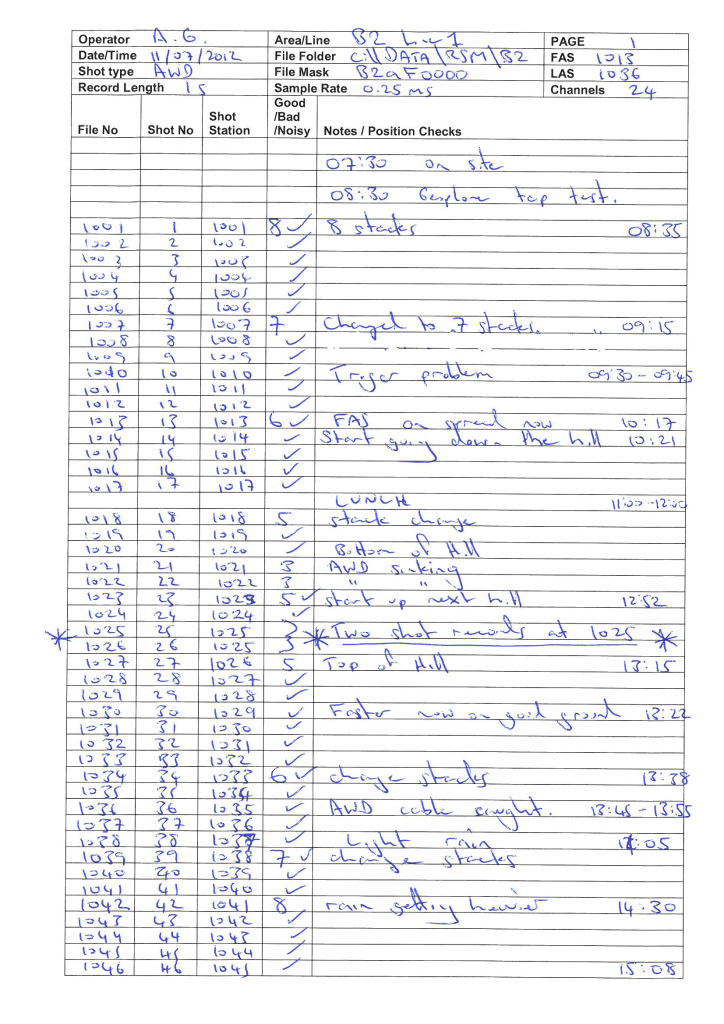 Operator A.G. Area/Line B2 Line 1 PAGE 1
Date/Time 11/07/2012 File Folder C:\\DATA\RSM\B2 FAS 1013
Shot type AWD File Mask B2aF0000 LAS 1036
Record Length 1s Sample Rate 0.25 ms Channels 24
File No Shot No Shot Station Good /Bad /Noisy Notes / Position Checks
07:30 on site
08:30 Geophone tap test.
1001 1 1001 8 ✓ 8 stacks 08:35
1002 2 1002 ✓
1003 3 1003 ✓
1004 4 1004 ✓
1005 5 1005 ✓
1006 6 1006 ✓
1007 7 1007 7 Changed to 7 stacks. 09:15
1008 8 1008 ✓
1009 9 1009 ✓
1010 10 1010 ✓ Trigger problem 09:30 - 09:45
1011 11 1011 ✓
1012 12 1012 ✓
1013 13 1013 6 ✓ FAS on spread now 10:17
1014 14 1014 ✓ Start going down the hill 10:21
1015 15 1015 ✓
1016 16 1016 ✓
1017 17 1017 ✓
LUNCH 11:00 - 12:00
1018 18 1018 5 stack change
1019 19 1019 ✓
1020 20 1020 ✓ Bottom of Hill
1021 21 1021 3 AWD sinking
1022 22 1022 3 " "
1023 23 1023 5 ✓ start up next hill 12:52
1024 24 1024 ✓
* 1025 25 1025 3 * Two shot records at 1025 *
1026 26 1025 3
1027 27 1026 5 Top of Hill 13:15
1028 28 1027 ✓
1029 29 1028 ✓
1030 30 1029 ✓ Faster now on good ground 13:22
1031 31 1030 ✓
1032 32 1031 ✓
1033 33 1032 ✓
1034 34 1033 6 ✓ change stacks 13:38
1035 35 1034 ✓
1036 36 1035 ✓ AWD cable caught. 13:45 - 13:55
1037 37 1036 ✓
1038 38 1037 ✓ Light rain 14:05
1039 39 1038 7 ✓ change stacks
1040 40 1039 ✓
1041 41 1040 ✓
1042 42 1041 8 rain getting heavier 14:30
1043 43 1042 ✓
1044 44 1043 ✓
1045 45 1044 ✓
1046 46 1045 ✓ 15:08